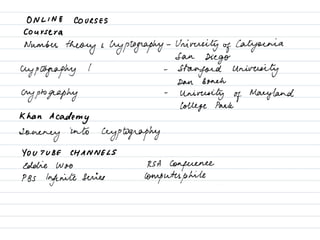 ONLINE COURSES
Coursera
Number theory & Cryptography - University of California
San Diego
Cryptography I - Stanford University
Dan Boneh
Cryptography - University of Maryland
College Park
Khan Academy
Journey into Cryptography
YOUTUBE CHANNELS
Eddie Woo RSA Conference
PBS Infinite Series Computerphile